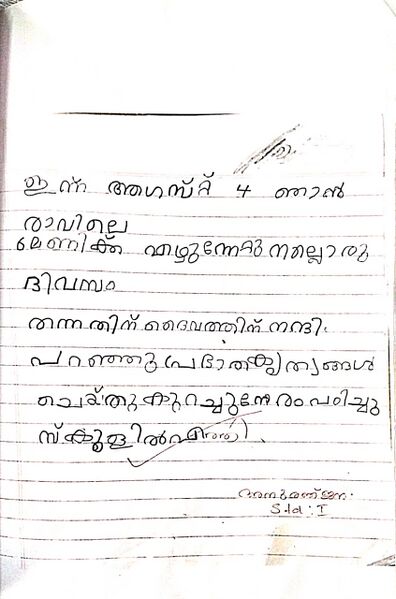 ഇന്ന് ആഗസ്റ്റ് 4 ഞാൻ
രാവിലെ
6മണിക്ക് എഴുന്നേറ്റു നല്ലൊരു
ദിവസം
തന്നതിന് ദൈവത്തിന് നന്ദി.
പറഞ്ഞു പ്രഭാതകൃത്യങ്ങൾ
ചെയ്തു കുറച്ചുനേരം പഠിച്ചു
സ്കൂളിൽ എത്തി.
Std : I